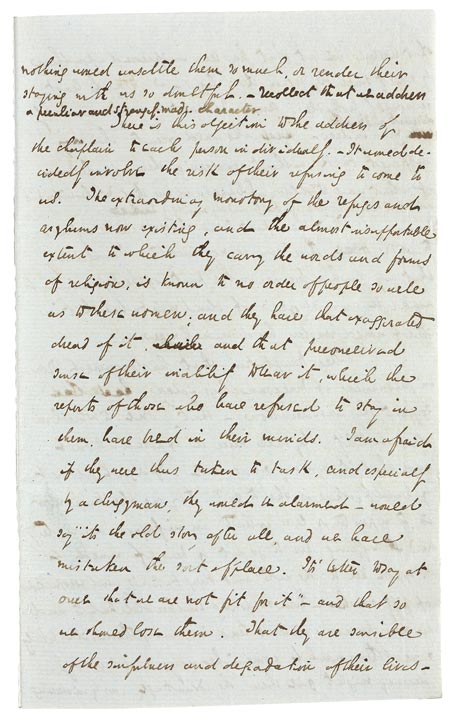 nothing would unsettle them so much, or render their
staying with us so doubtful. – Recollect that we address
a peculiar and strangely made character.
There is this objection to the address of
the chaplain to each person individually. – It would de-
cidedly involve the risk of their refusing to come to
us. The extraordinary monotony of the refuges and
asylums now existing, and the almost insupportable
extent to which they carry the words and forms
of religion, is known to no order of people so well
as to these women; and they have that exaggerated
dread of it, and that preconceived
sense of their inability to bear it, which the
reports of those who have refused to stay in
them, have bred in their minds. I am afraid
if they were thus taken to task, and especially
by a clergyman, they would be alarmed – would
say "it's the old story after all, and we have
mistaken the sort of place. It's better to say at
once that we are not fit for it" – and that so
we should lose them. That they are sensible
of the sinfulness and degradation of their lives –